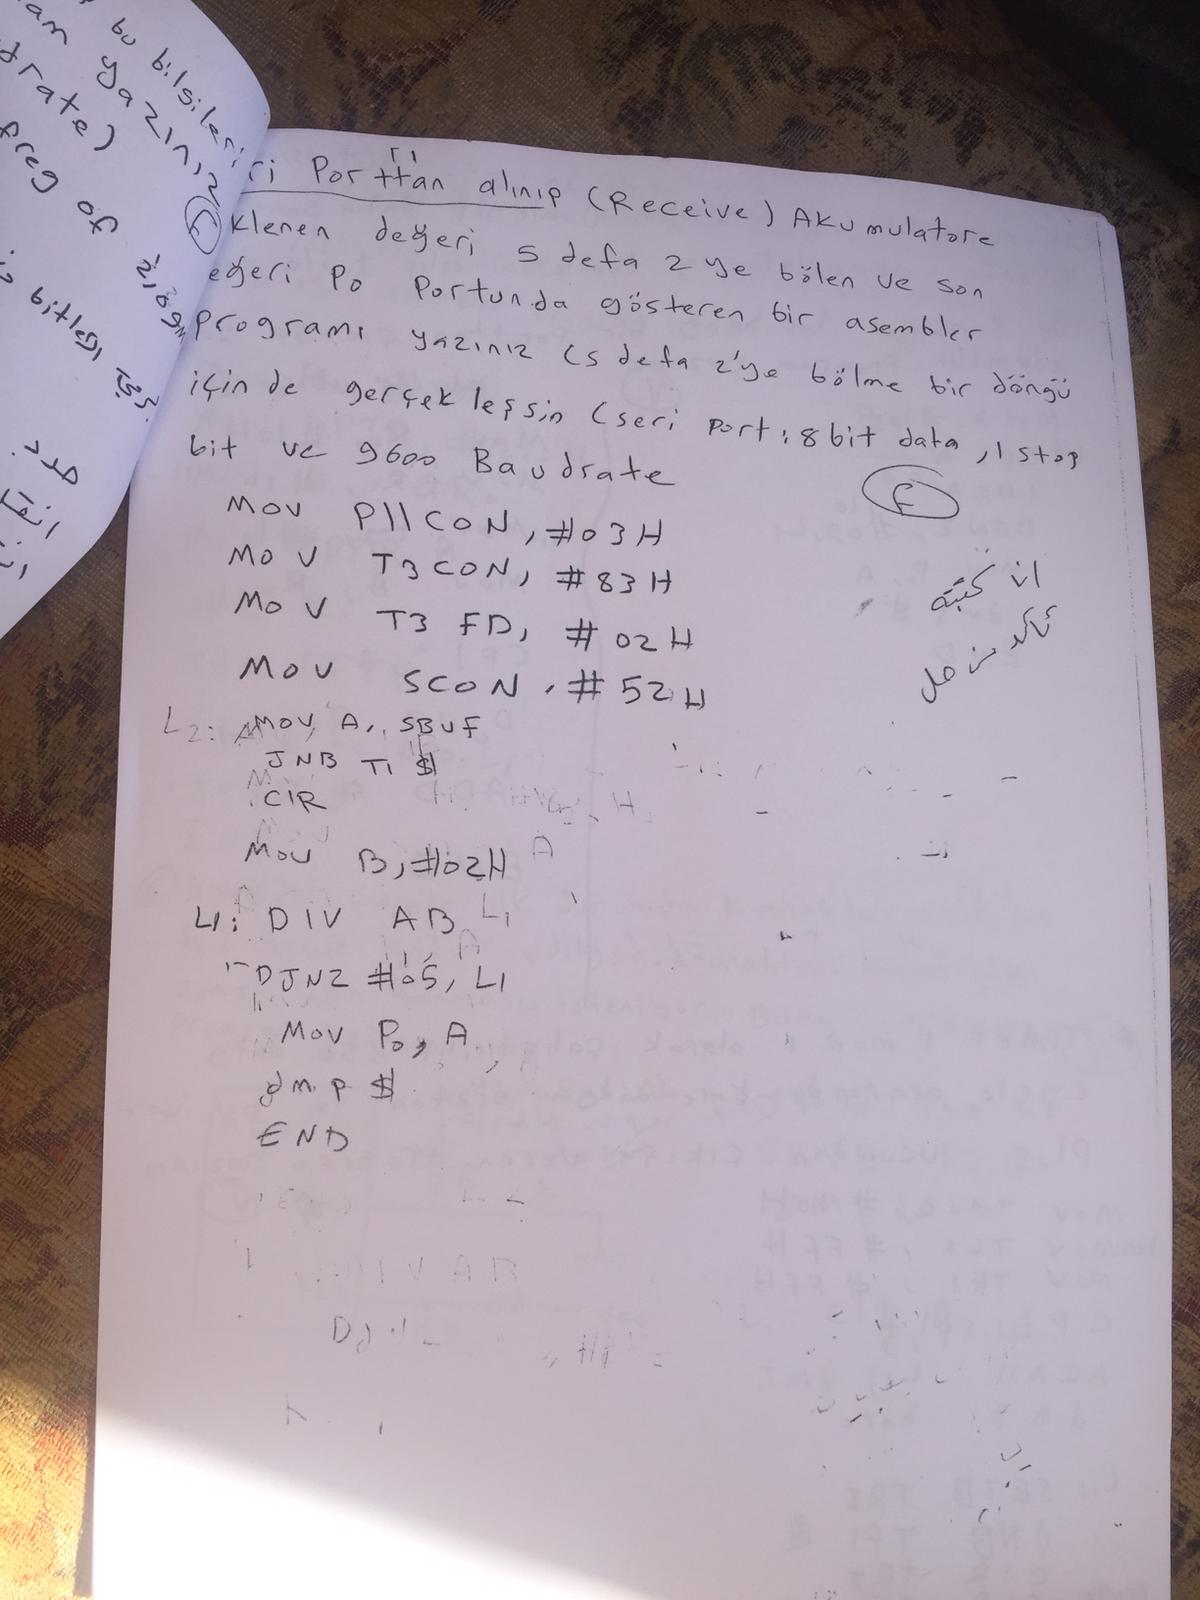 bu bilgileri
yazın,
drate)
freg of
bitleri
حدد
ri Porttan alınıp (Receive) AKumulatore
klenen değeri 5 defa 2 ye bölen ve son
eğeri Po Portunda gösteren bir asembler
programı yazınız (5 defa 2'ye bölme bir döngü
içinde gerçekleşsin (seri port: 8 bit data, 1 stop
bit ve 9600 Baudrate
MOV PllCON, #03H
MOV T3CON, #83H
انا كتبته
MOV T3FD, #02H
تأكد من حل
MOV SCON, #52H
L2: MOV A, SBUF
JNB TI $
CIR
MOV B, #02H
L1: DIV AB
DJNZ #05, L1
MOV Po, A
Jmp $
END